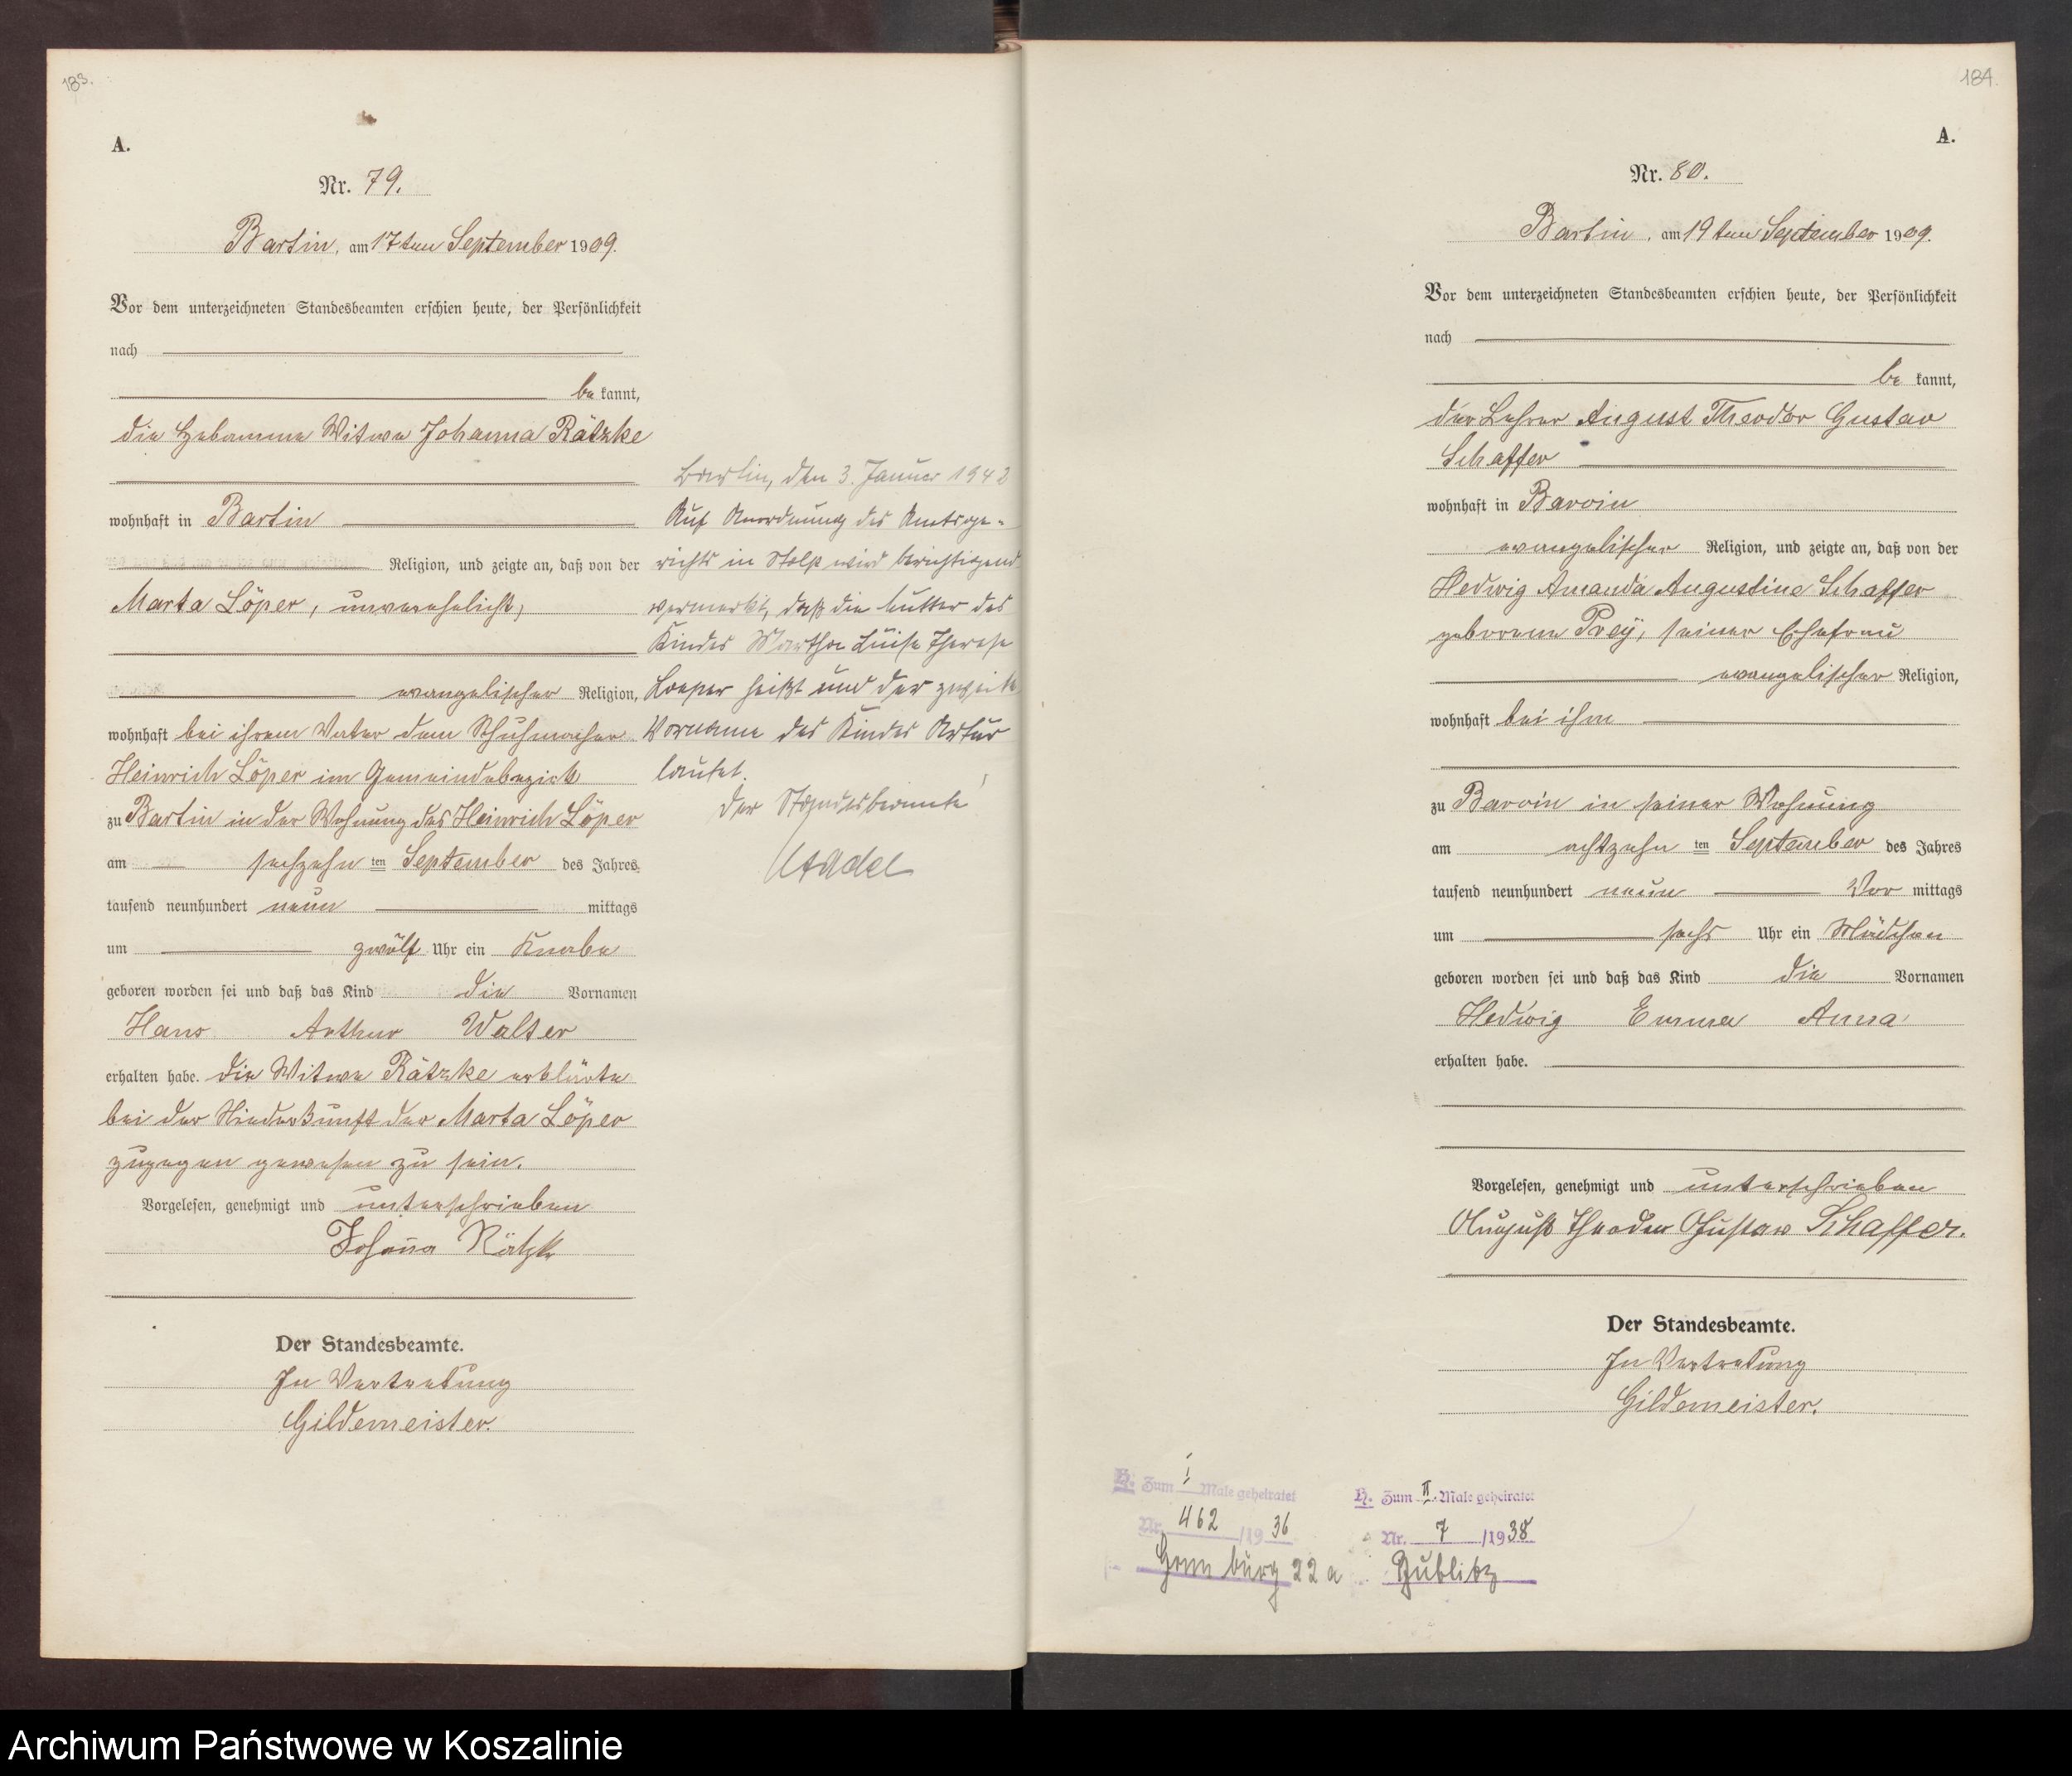 183.
A.
Nr. 79.
Bartin, am 17ten September 1909.
Vor dem unterzeichneten Standesbeamten erschien heute, der Persönlichkeit
nach
be kannt,
die Hebamme Witwe Johanna Rätzke
wohnhaft in Bartin
Religion, und zeigte an, daß von der
Marta Löper, unverehelicht,
evangelischer Religion,
wohnhaft bei ihrem Vater dem Schuhmacher
Heinrich Löper im Gemeindebezirk
zu Bartin in der Wohnung des Heinrich Löper
am sechzehn ten September des Jahres
tausend neunhundert neun mittags
um zwölf Uhr ein Knabe
geboren worden sei und daß das Kind die Vornamen
Hans Arthur Walter
erhalten habe. Die Witwe Rätzke erklärte
bei der Niederkunft der Marta Löper
zugegen gewesen zu sein.
Vorgelesen, genehmigt und unterschrieben
Johanna Rätzke
Der Standesbeamte.
In Vertretung
Gildemeister.
Bartin, den 3. Januar 1942
Auf Anordnung des Amtsge-
richts in Stolp wird berichtigend
vermerkt, daß die Mutter des
Kindes Martha Luise Therese
Loeper heißt und der zweite
Vorname des Kindes Artur
lautet.
Der Standesbeamte
184.
A.
Nr. 80.
Bartin, am 19ten September 1909.
Vor dem unterzeichneten Standesbeamten erschien heute, der Persönlichkeit
nach
be kannt,
der Lehrer August Theodor Gustav
Schaffer
wohnhaft in Barvin
evangelischer Religion, und zeigte an, daß von der
Hedwig Amanda Augustine Schaffer
geborene Prey, seiner Ehefrau
evangelischer Religion,
wohnhaft bei ihm
zu Barvin in seiner Wohnung
am achtzehn ten September des Jahres
tausend neunhundert neun Vor mittags
um sechs Uhr ein Mädchen
geboren worden sei und daß das Kind die Vornamen
Hedwig Emma Anna
erhalten habe.
Vorgelesen, genehmigt und unterschrieben
August Theodor Gustav Schaffer.
Der Standesbeamte.
In Vertretung
Gildemeister.
H. Zum I Male geheiratet
Nr. 462 /1936
H. Zum II. Male geheiratet
Nr. 7 /1938
Bublitz
Archiwum Państwowe w Koszalinie